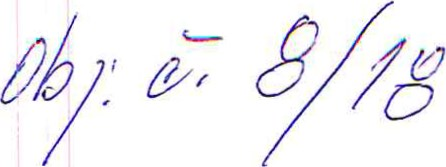 Obj. č. 8/18